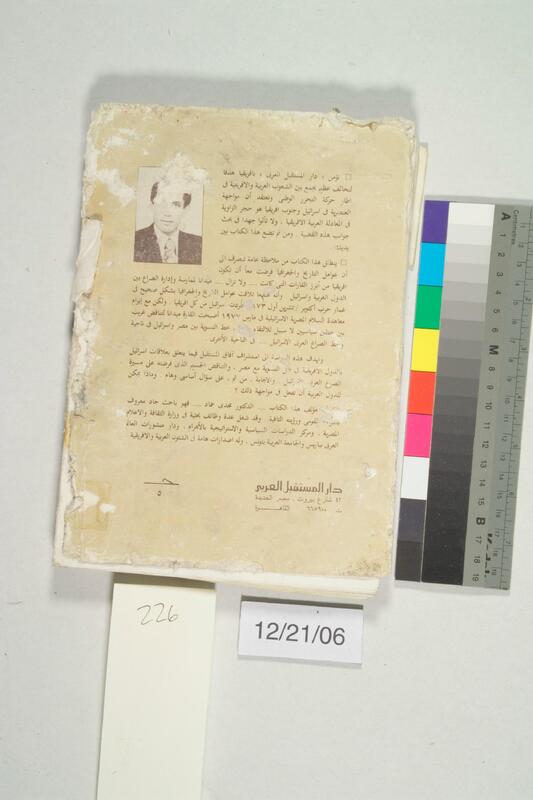 □ تؤمن « دار المستقبل العربى » بأفريقيا هدفا
لتحالف عظيم يجمع بين الشعوب العربية والأفريقية فى
اطار حركة التحرر الوطنى وتعتقد أن مواجهة
العنصرية فى اسرائيل وجنوب افريقيا هو حجر الزاوية
فى المعادلة العربية الأفريقية . ولا تألوا جهدا فى بحث
جوانب هذه القضية . ومن ثم تضع هذا الكتاب بين
يديك .
□ ينطلق هذا الكتاب من ملاحظة عامة تنصرف الى
أن عوامل التاريخ والجغرافيا فرضت معاً أن تكون
افريقيا من أبرز القارات التى كانت ... ولا تزال ... ميدانا لممارسة وإدارة الصراع بين
الدول العربية واسرائيل وأنه قلما تلاقت عوامل التاريخ والجغرافيا بشكل صحيح فى
غمار حرب أكتوبر / تشرين أول ١٩٧٣ اسرائيل من كل افريقيا . ولكن مع إبرام
معاهدة السلام المصرية الاسرائيلية فى مارس ١٩٧٩ أصبحت القارة ميدانا لتناقض غريب
بين خطين سياسيين لا سبيل للالتقاء خط التسوية بين مصر واسرائيل فى ناحية
وخط الصراع العربى الاسرائيلى ... فى الناحية الأخرى
وتهدف هذه الدراسة الى استشراف آفاق المستقبل فيما يتعلق بعلاقات اسرائيل
بالدول الأفريقية فى ظل التسوية مع مصر . والتناقض الجسيم الذى فرضته على مسيرة
الصراع العربى الاسرائيلى . والاجابة . من ثم ، على سؤال أساسى وهام وماذا يمكن
للدول العربية أن تفعل فى مواجهة ذلك ؟
مؤلف هذا الكتاب ... الدكتور مجدى حماد ... فهو باحث جاد معروف
القومى ورؤيته الثاقبة . وقد شغل عدة وظائف بحثية فى وزارة الثقافة والاعلام
المصرية . ومركز الدراسات السياسية والاستراتيجية بالأهرام . ودار منشورات العالم
العربى بباريس والجامعة العربية بتونس . وله اصدارات هامة فى الشئون العربية والافريقية
دار المستقبل العربى
٤١ شارع بيروت . مصر الجديدة
ت ٦٦٥٩٠٠ القاهرة
٥
226
12/21/06
A
1
2
3
4
5
6
M
8
9
10
11
12
13
14
15
B
17
18
19